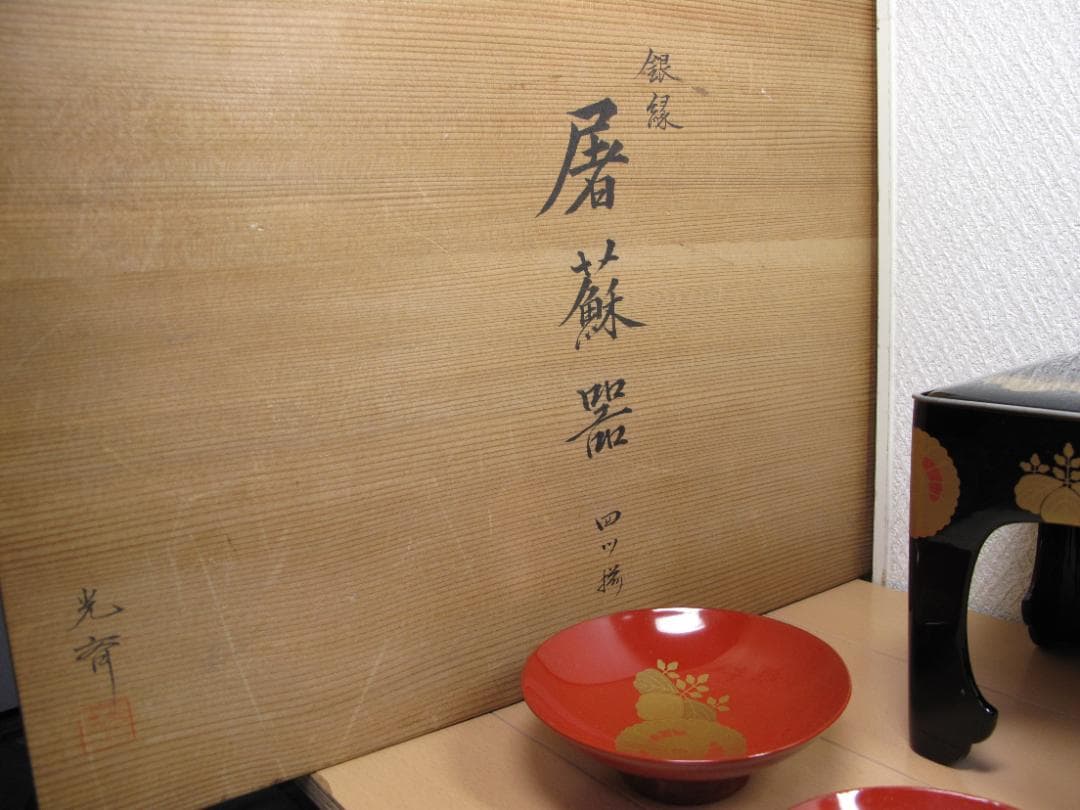 銀縁
屠蘇器
四ツ揃
光斎